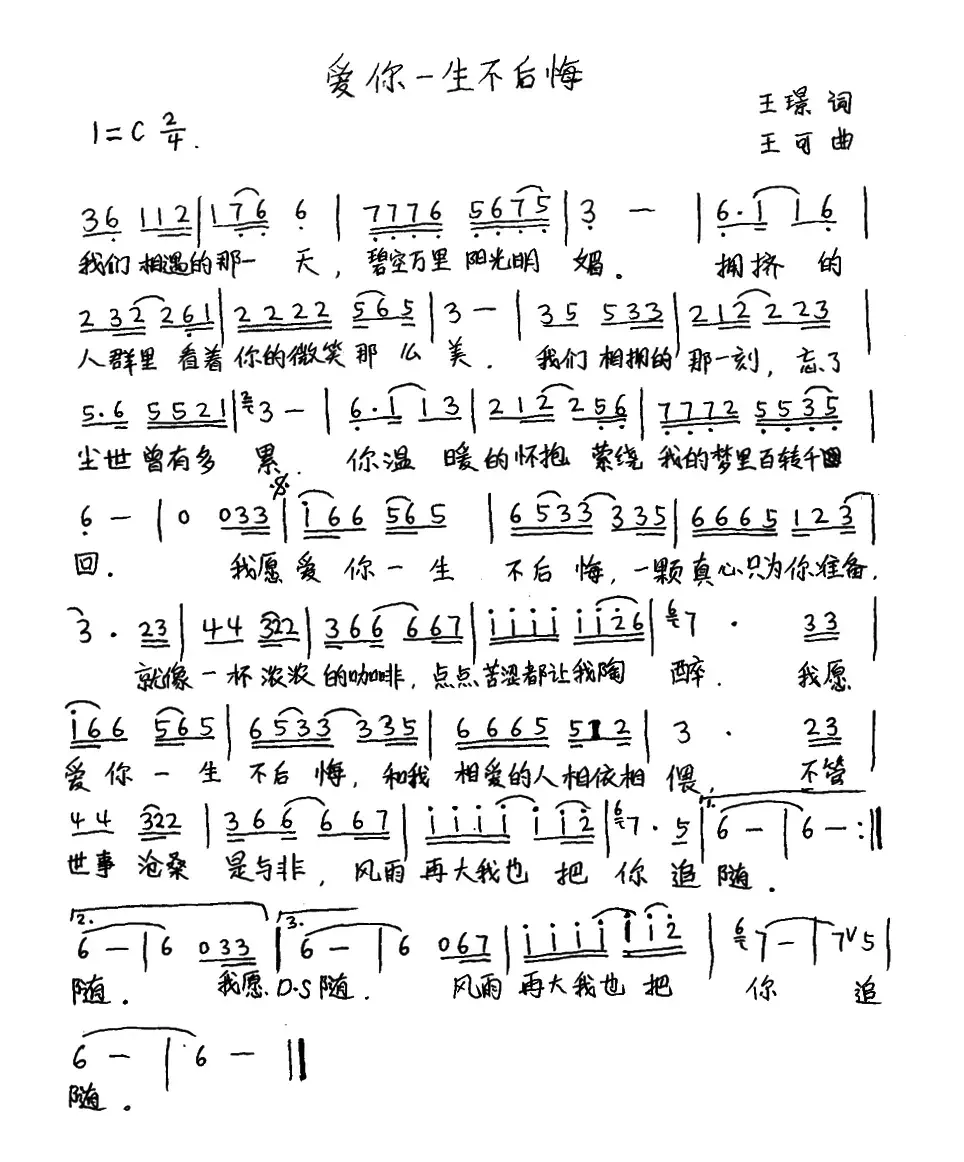 爱你一生不后悔
王璟 词
1=C 2/4.
王可 曲
36 112 | 176 6 | 7776 5675 | 3 — | 6·1 16 |
我们相遇的那一天，碧空万里阳光明媚． 拥挤的
232 261 | 2222 565 | 3 — | 35 533 | 212 223 |
人群里看着你的微笑那么美． 我们相拥的那一刻，忘了
5·6 5521 | 2 3 — | 6·1 13 | 212 256 | 7772 5535 |
尘世曾有多累． 你温暖的怀抱萦绕我的梦里百转千回
6 — | 0 033 | i66 565 | 6533 335 | 6665 123 |
回． 我愿爱你一生不后悔，一颗真心只为你准备．
3· 23 | 44 322 | 366 667 | iiii ii26 | 6 7· 33 |
就像一杯浓浓的咖啡，点点苦涩都让我陶醉． 我愿
i66 565 | 6533 335 | 6665 512 | 3· 23 |
爱你一生不后悔，和我相爱的人相依相偎，不管
44 322 | 366 667 | iiii ii2 | 6 7· 5 | 1. 6 — | 6 — :||
世事沧桑是与非，风雨再大我也把你追随．
2. 6 — | 6 033 :|| 3. 6 — | 6 067 | iiii ii2 | 6 7 — | 7∨5 |
随． 我愿．D.S随． 风雨再大我也把你追
6 — | 6 — ||
随．